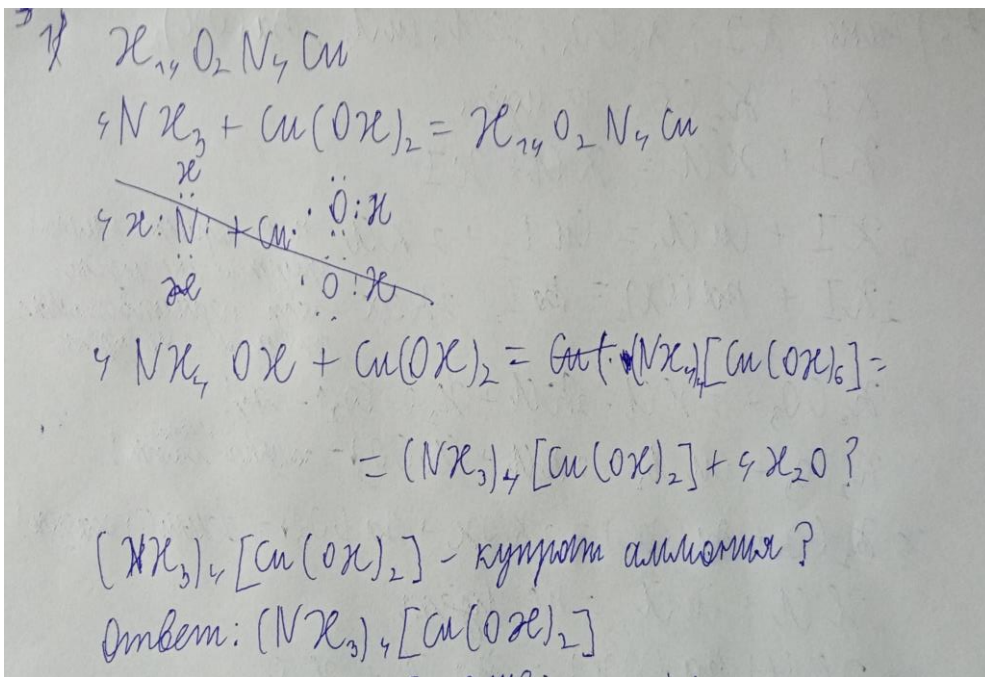 1) H₁₄O₂N₄Cu
4NH₃ + Cu(OH)₂ = H₁₄O₂N₄Cu
H
4 H:N: + Cu· ·O:H
H ·O:H
4 NH₄OH + Cu(OH)₂ = (NH₄)₄[Cu(OH)₆] =
= (NH₃)₄[Cu(OH)₂] + 4H₂O?
(NH₃)₄[Cu(OH)₂] - купрат аммония?
Ответ: (NH₃)₄[Cu(OH)₂]